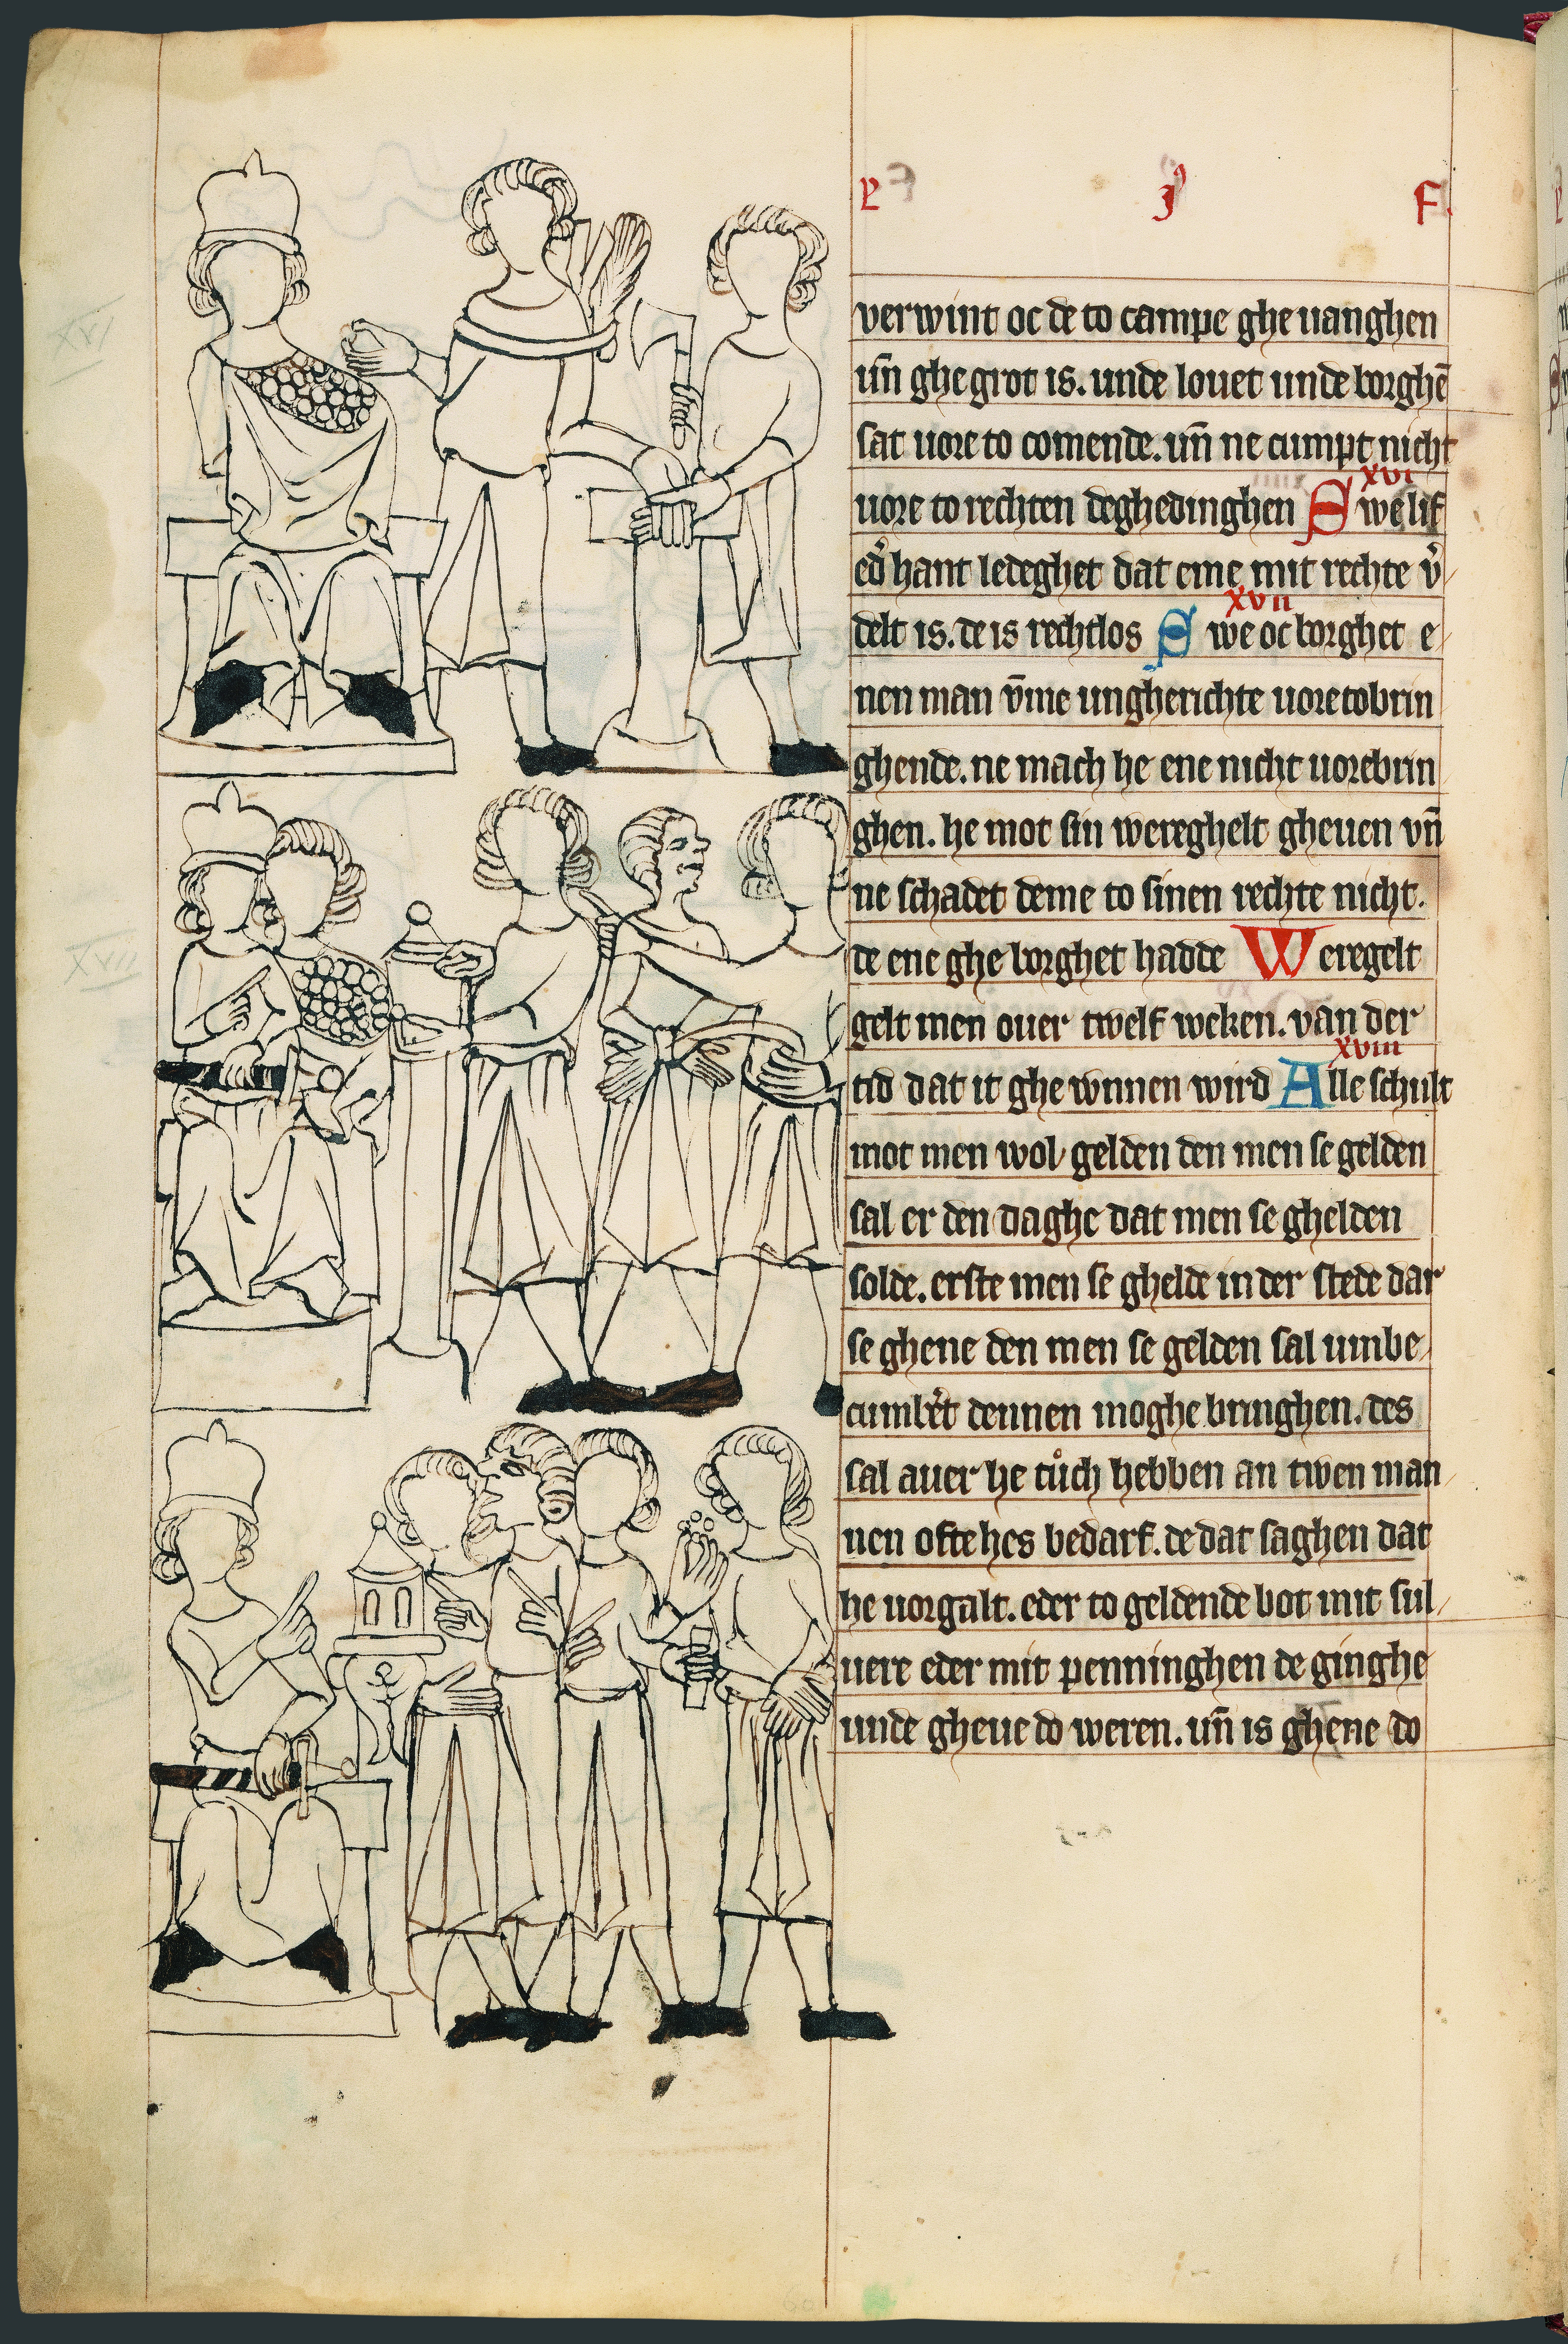 L j F.
verwint oc de to campe ghe uanghen
un̄ ghegrot is. unde louet unde borghē
sat uore to comende. un̄ ne cumpt nicht
xvi
uore to rechten deghedinghen Swe lif
ed' hant ledeghet dat eme mit rechte v'
xvii
delt is. de is rechtlos Swe oc borghet e
nen man v̄me ungherichte uoretobrin
ghende. ne mach he ene nicht uorebrin
ghen. he mot sin wereghelt gheuen vn̄
ne schadet deme to sinen rechte nicht.
de ene ghe borghet hadde Weregelt
gelt men ouer twelf weken. van der
xviii
tid dat it ghe wnnen wird Alle schult
mot men wol gelden den men se gelden
sal er den daghe dat men se ghelden
solde. erste men se ghelde in der stede dar
se ghene den men se gelden sal umbe
cumb't dennen moghe bringhen. des
sal auer he tůch hebben an twen man
nen ofte hes bedarf. de dat saghen dat
he uorgalt. eder to geldende bot mit sul
uere eder mit penninghen de ginghe
unde gheue do weren. un̄ is ghene do
XVI
XVII